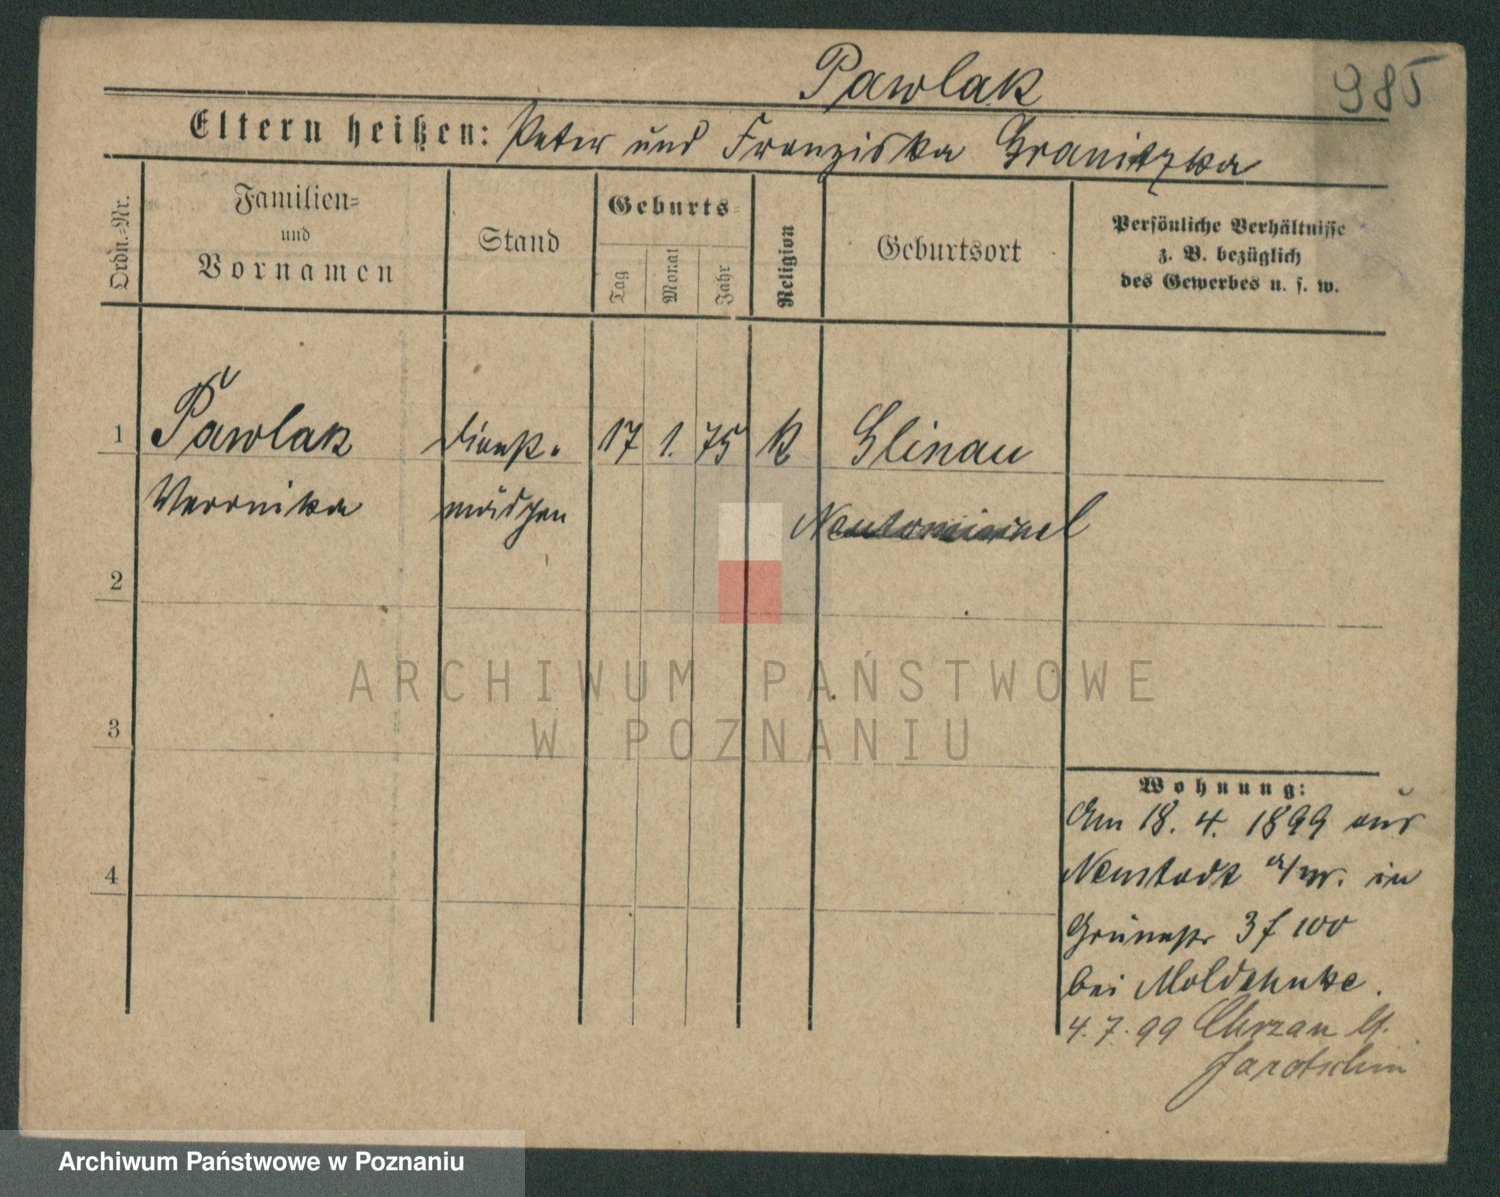 Pawlak
985
Eltern heißen: Peter und Franziska Granitzka
Ordn.-Nr.
Familien-
und
Vornamen
Stand
Geburts-
Tag
Monat
Jahr
Religion
Geburtsort
Persönliche Verhältnisse
z. B. bezüglich
des Gewerbes u. s. w.
1 Pawlak Dienst- 17 1. 75 k Glinau
Veronika mädchen Neutomischel
2
3
4
ARCHIWUM PAŃSTWOWE
W POZNANIU
Wohnung:
Am 18. 4. 1899 aus
Neustadt a/W. in
Grünestr 3 f 100
bei Moldehnke.
4. 7. 99 Chrzan Kr.
Jarotschin
Archiwum Państwowe w Poznaniu